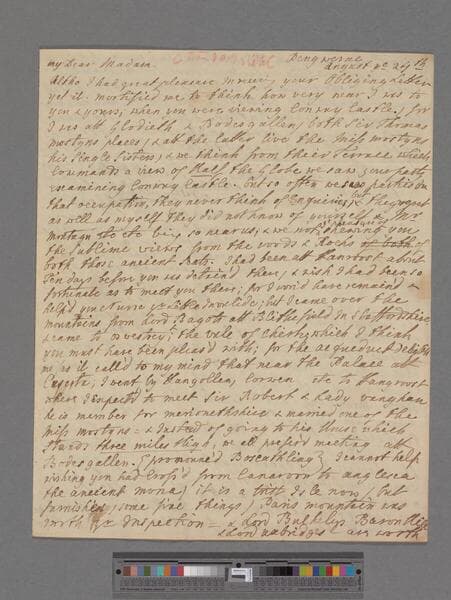 Bengwerne
my Dear Madam August ye 29th
Altho I had great pleasure in your Obliging Letter
yet it mortified me to think how very near I was to
you & yours, when you were viewing Conway Castle, for
I was att Glodieth & Bodesgallen, both Sir Thomas
mostyns places, & att the latter live the Miss mostyns
his Single Sisters, & we think from their Terrace which
Commands a view of Half the Globe we saw your party
examining Conway Castle. but so often we saw parties on
that occupation, they never think of Enquiries, & but they regret
as well as myself they did not know of yourself & Mr
montagu etc etc being so near us; & we not shewing you
the Sublime views from the woods & Rocks of both of
both those ancient Seats. I had been att Llanroost about
Ten days before you was detaind there, & wish I had been so
fortunate as to meet you there; for I wou'd have remaind &
help'd you; but I came over the
mountains from Lord Bagots att Blithfield in Staffordshire,
& came to oswestry; the vale of Chirk, which I think
you must have been pleasd with; for the aqueduct delighted
me as it called to my mind that near the Palace att
Caserta, I went by Llangollen, Corwen etc to Llangroost
where I expected to meet Sir Robert & Lady vaughan
he is member for merionethshire & married one of the
Miss mostons = & Instead of going to his House which
stands three miles thence, we all prefer'd meeting att
Bodesgallen. (pronounced Boscathling) I cannot help
wishing you had Cross'd from Canarvon to anglesea
the ancient mona, it is a Isle now, but
furnishes some fine things) Paris mountain was
worth yr Inspection = & Lord Bulkleys Baronhill
& Lord uxbridges are worth